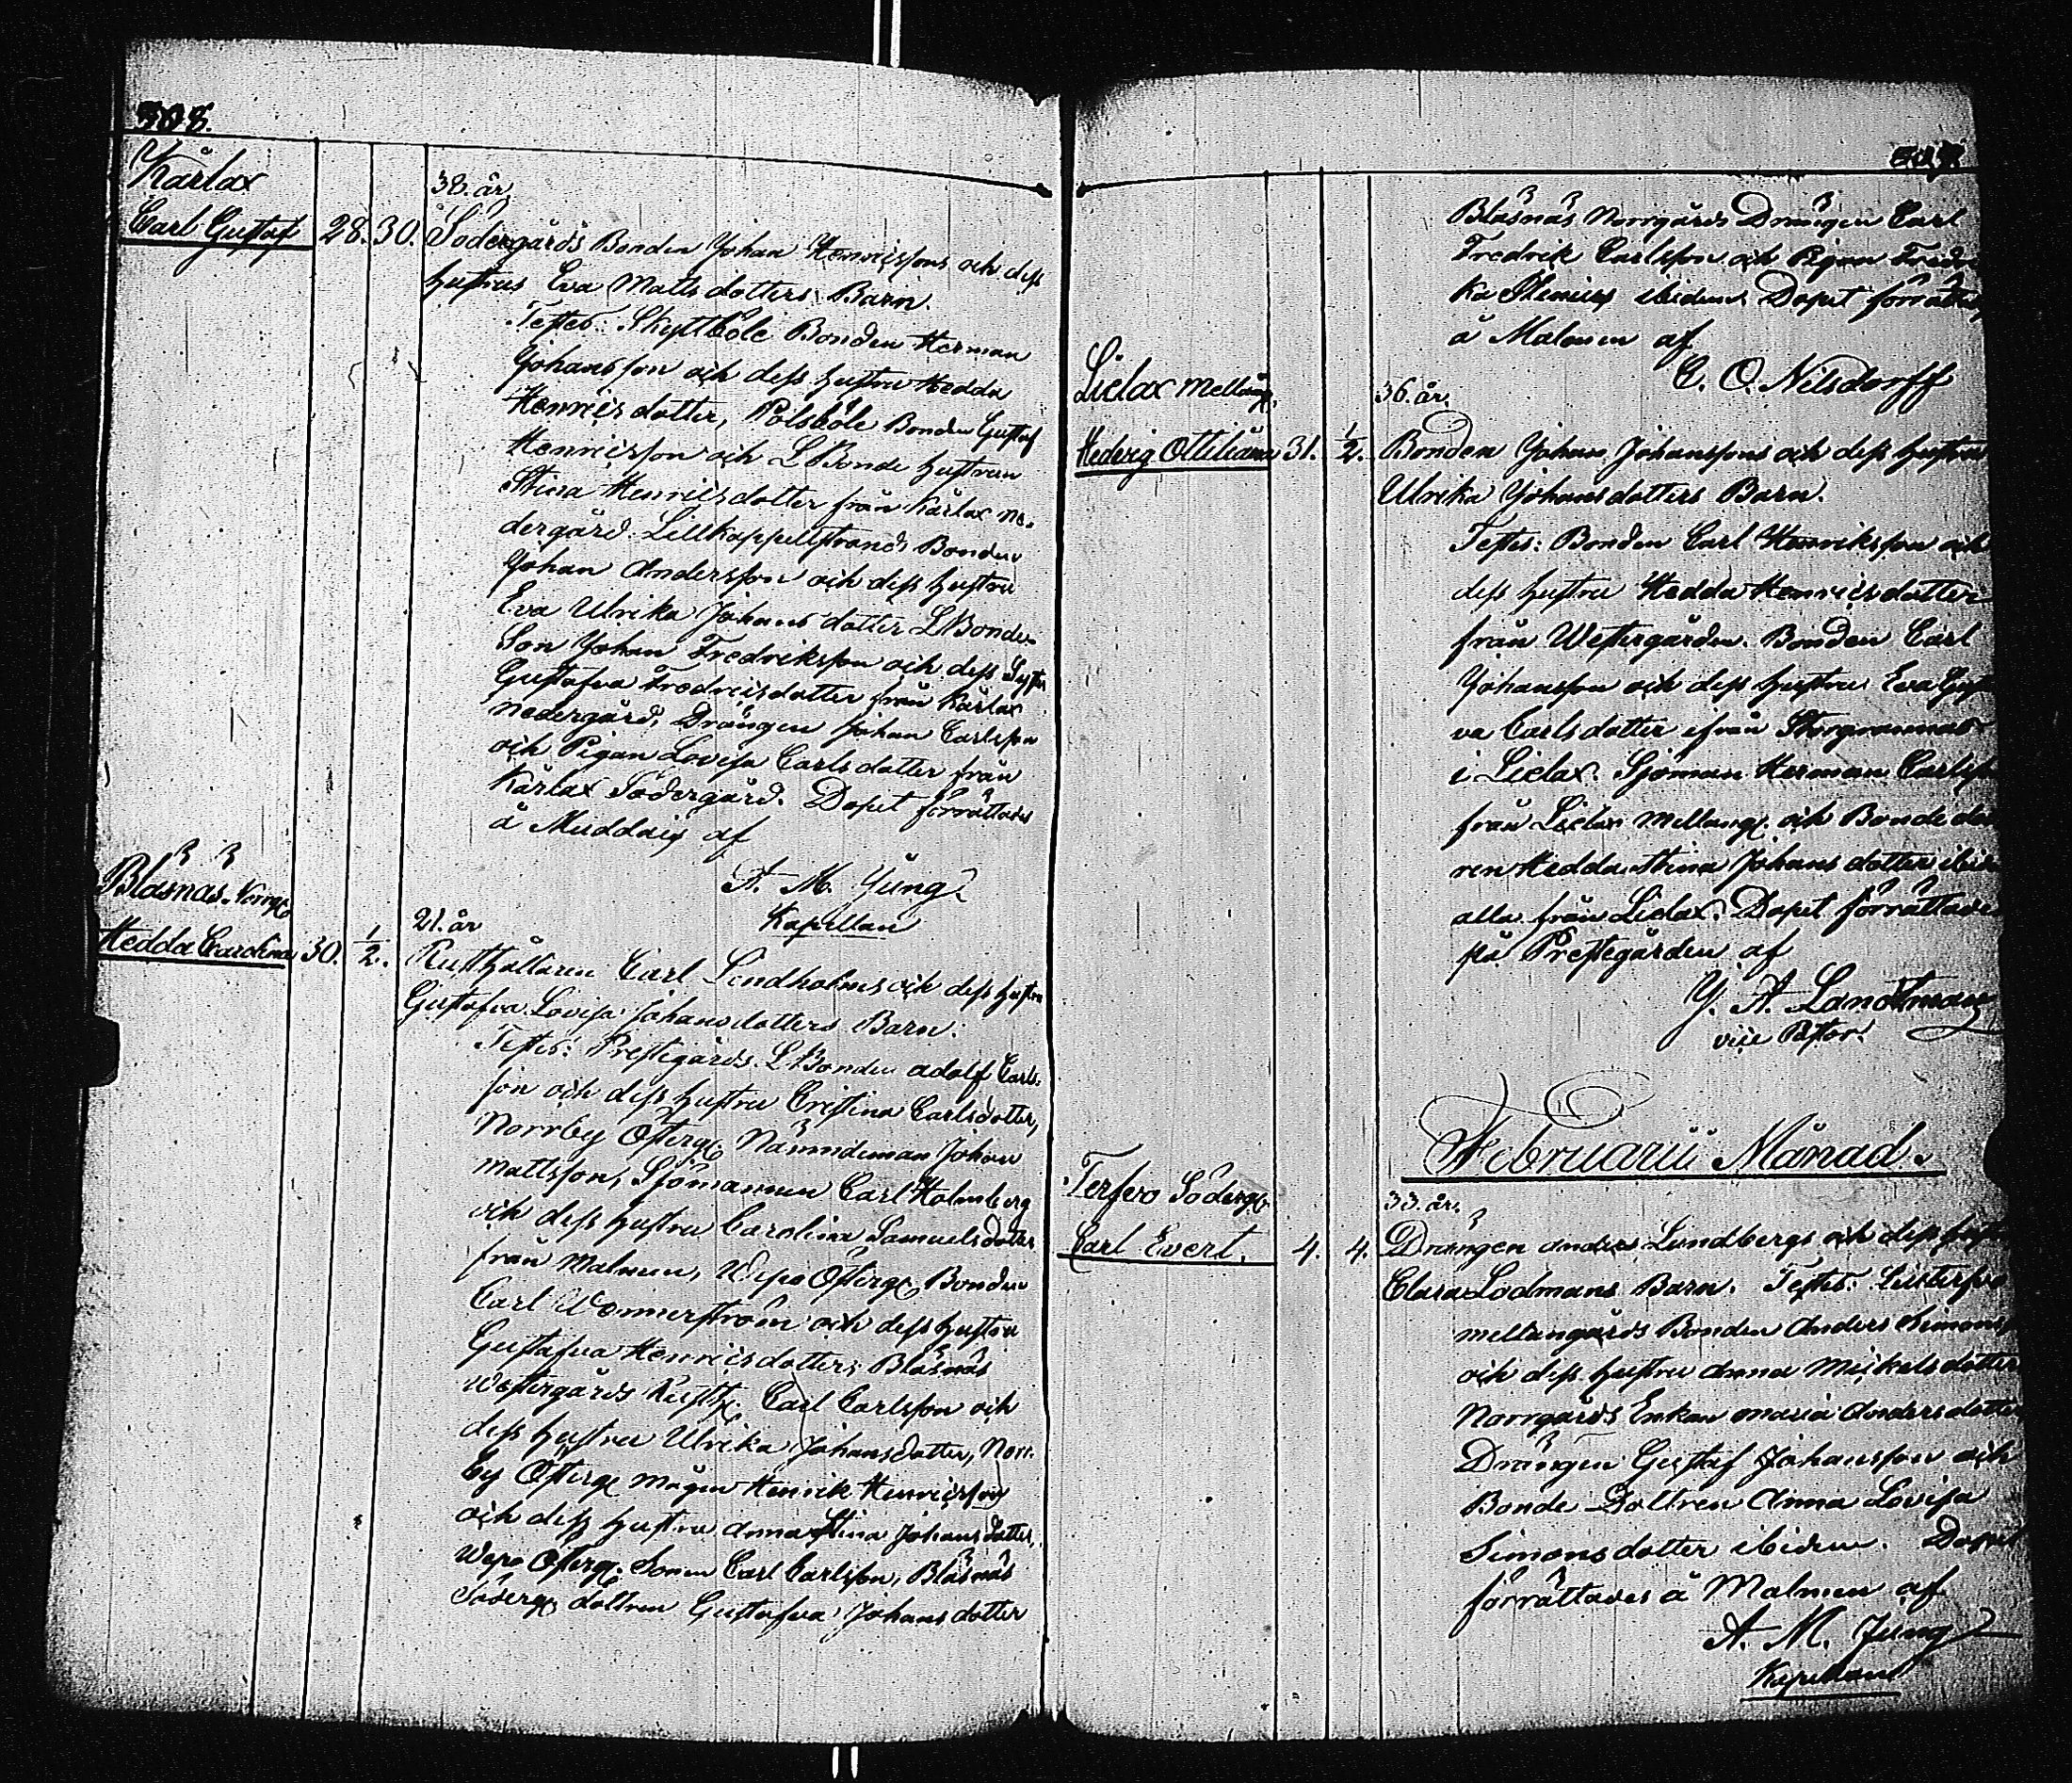 Kårlax
38. år.
Carl Gustaf 28. 30. Södergårds Bonden Johan Henricssons och dess
hustrus Eva Matts dotters Barn.
Testes: Skyttböle Bonden Herman
Johansson och dess hustru Hedda
Henrics dotter, Pölsböle Bonden Gustaf
Henricsson och LBonde hustrun
Stina Henrics dotter från Kårlax Ne-
dergård. Lillkappellstrands Bonden
Johan Andersson och dess hustru
Eva Ulrika Johans dotter LBonde-
Son Johan Fredriksson och dess Syster
Gustafva Fredrics dotter från Kårlax
Nedergård, Drängen Johan Carlsson
och Pigan Lovisa Carls dotter från
Kårlax Södergård. Dopet förrättades
å Muddais af
A. M. Jung
Kapellan
Blåsnäs Norrg
21. år
Hedda Carolina 30. 1/2. Rusthållaren Carl Lindholms och dess hustru
Gustafva Lovisa Johans dotters Barn:
Testes: Prestegårds LBonden Adolf Carls-
son och dess hustru Cristina Carlsdotter,
Norrby Österg Nämndeman Johan
Mattsson, Sjömannen Carl Holmberg
och dess hustru Carolina Samuelsdotter
från Malmen, Wepo Österg Bonden
Carl Wennerström och dess hustru
Gustafva Henrics dotter, Blåsnäs
Westergårds Rusth. Carl Carlsson och
dess hustru Ulrika Johansdotter, Norr-
by Österg mågen Henrik Henricsson
och dess hustru Anna Stina Johans dotter,
Wepo Österg. Sonen Carl Carlsson, Blåsnäs
Söderg dottren Gustafva Johans dotter
Blåsnäs Norrgårds Drängen Carl
Fredrik Carlsson och Pigan Fredri
ka ibidem. Dopet förrättades
å Malmen af
C. O. Nilsdorff
Lielax Mellang.
36. år.
Hedvig Ottiliana 31. 1/2. Bonden Johan Johanssons och dess hustrus
Ulrika Johans dotters Barn.
Testes: Bonden Carl Henriksson och
dess hustru Hedda Henrics dotter
från Westergården. Bonden Carl
Johansson och dess hustru Eva Gusta
va Carls dotter ifrån Storgrannas
i Lielax. Sjöman Herman Carlss
från Lielax Mellang. och Bonde dott
ren Hedda Stina Johans dotter ibid
alla från Lielax. Dopet förrättades
på Prestegården af
J. A. Landtman
vice Pastor.
Februarii Månad.
Terfvo Söderg.
33. år.
Carl Evert. 4. 4. Drängen Anders Lundbergs och dess hustru
Clara Lodmans Barn. Testes:
mellangårds Bonden Anders Simonss
och dess hustru Anna Mickels dotter
Norrgårds Enkan Maria Anders dotter
Drängen Gustaf Johansson och
Bonde Dottren Anna Lovisa
Simons dotter ibidem. Dopet
förrättades å Malmen af
A. M. Jung
Kapellan